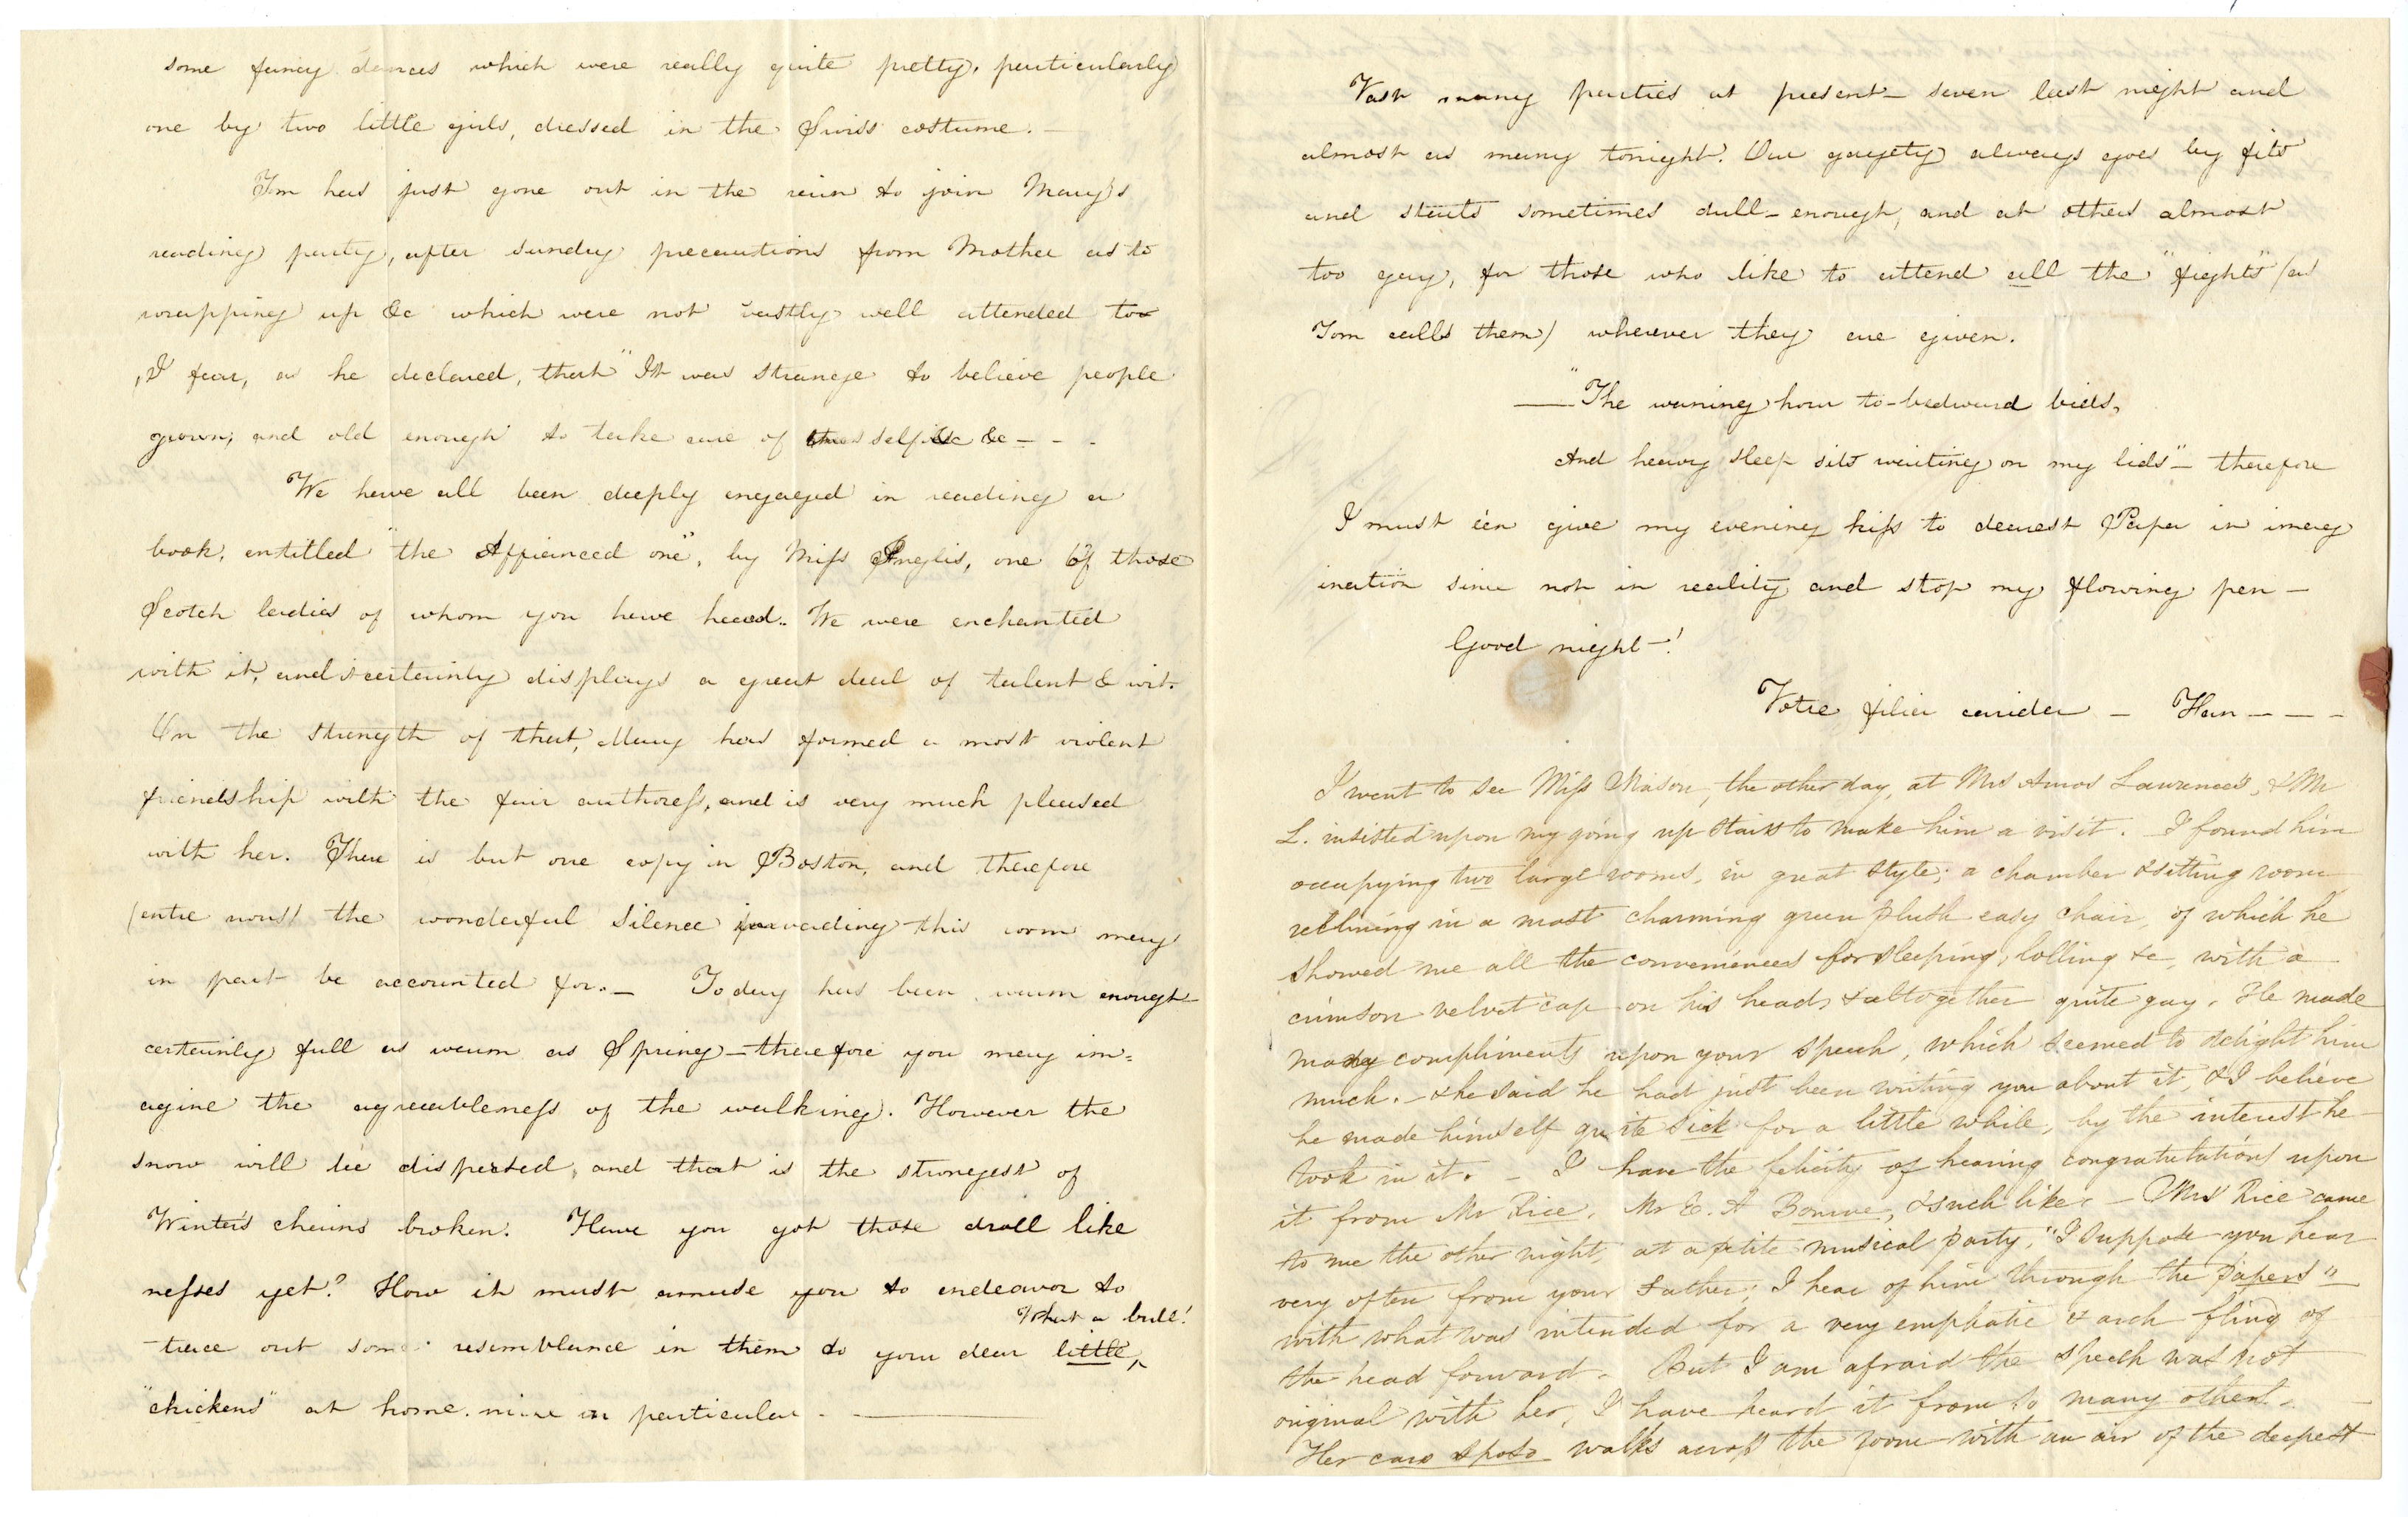 some fancy dances which were really quite pretty, particularly
one by two little girls, dressed in the Swiss costume. —
Tom has just gone out in the rain to join Mary's
reading party, after sundry precautions from Mother as to
wrapping up &c which were not vastly well attended to
, I fear, as he declared, that "It was strange to believe people
grown, and old enough to take care of self &c &c - - -
We have all been deeply engaged in reading a
book, entitled "the Affianced one", by Miss Inglis, one of those
Scotch ladies of whom you have heard.. We were enchanted
with it, and it certainly displays a great deal of talent & wit.
On the strength of that, Mary has formed a most violent
friendship with the fair authoress, and is very much pleased
with her. There is but one copy in Boston, and therefore
(entre nous) the wonderful silence pervading this room may
in part be accounted for. — Today has been warm enough
certainly full as warm as Spring — therefore you may im=
agine the agreeableness of the walking. However the
snow will be dispersed, and that is the strongest of
Winter's chains broken. Have you got those droll like
nesses yet? How it must amuse you to endeavor to
What a bull!
trace out some resemblance in them to your dear little ^
"chickens" at home. mine in particular . —
Vast many parties at present — seven last night and
almost as many tonight. Our gayety always goes by fits
and starts sometimes dull - enough, and at others almost
too gay, for those who like to attend all the "fights" (as
Tom calls them) wherever they are given.
— "The waning hour to-bedward bids,
And heavy sleep sits waiting on my lids" — therefore
I must e'en give my evening kiss to dearest Papa in imag
ination since not in reality and stop my flowing pen —
Good night — !
Votre filia — Han - - -
I went to see Miss Mason, the other day, at Mrs Amos Lawrence's, & Mr
L. insisted upon my going up stairs to make him a visit. I found him
occupying two large rooms, in great style; a chamber & sitting room
reclining in a most charming green plush easy chair, of which he
showed me all the conveniences for sleeping, lolling &c, with a
crimson velvet cap on his head, & altogether quite gay. He made
many compliments upon your speech, which seemed to delight him
much. — & he said he had just been writing you about it, & I believe
he made himself quite sick for a little while, by the interest he
took in it. — I have the felicity of hearing congratulations upon
it from Mr Rice, Mr E. A Bourne, & such like. — Mrs Rice came
to me the other night, at a petite musical party, "I suppose you hear
very often from your Father; I hear of him through the papers"
with what was intended for a very emphatic & arch fling of
the head forward. But I am afraid the speech was not
original with her, I have heard it from so many others.
Her caro sposo walks across the room with an air of the deepest